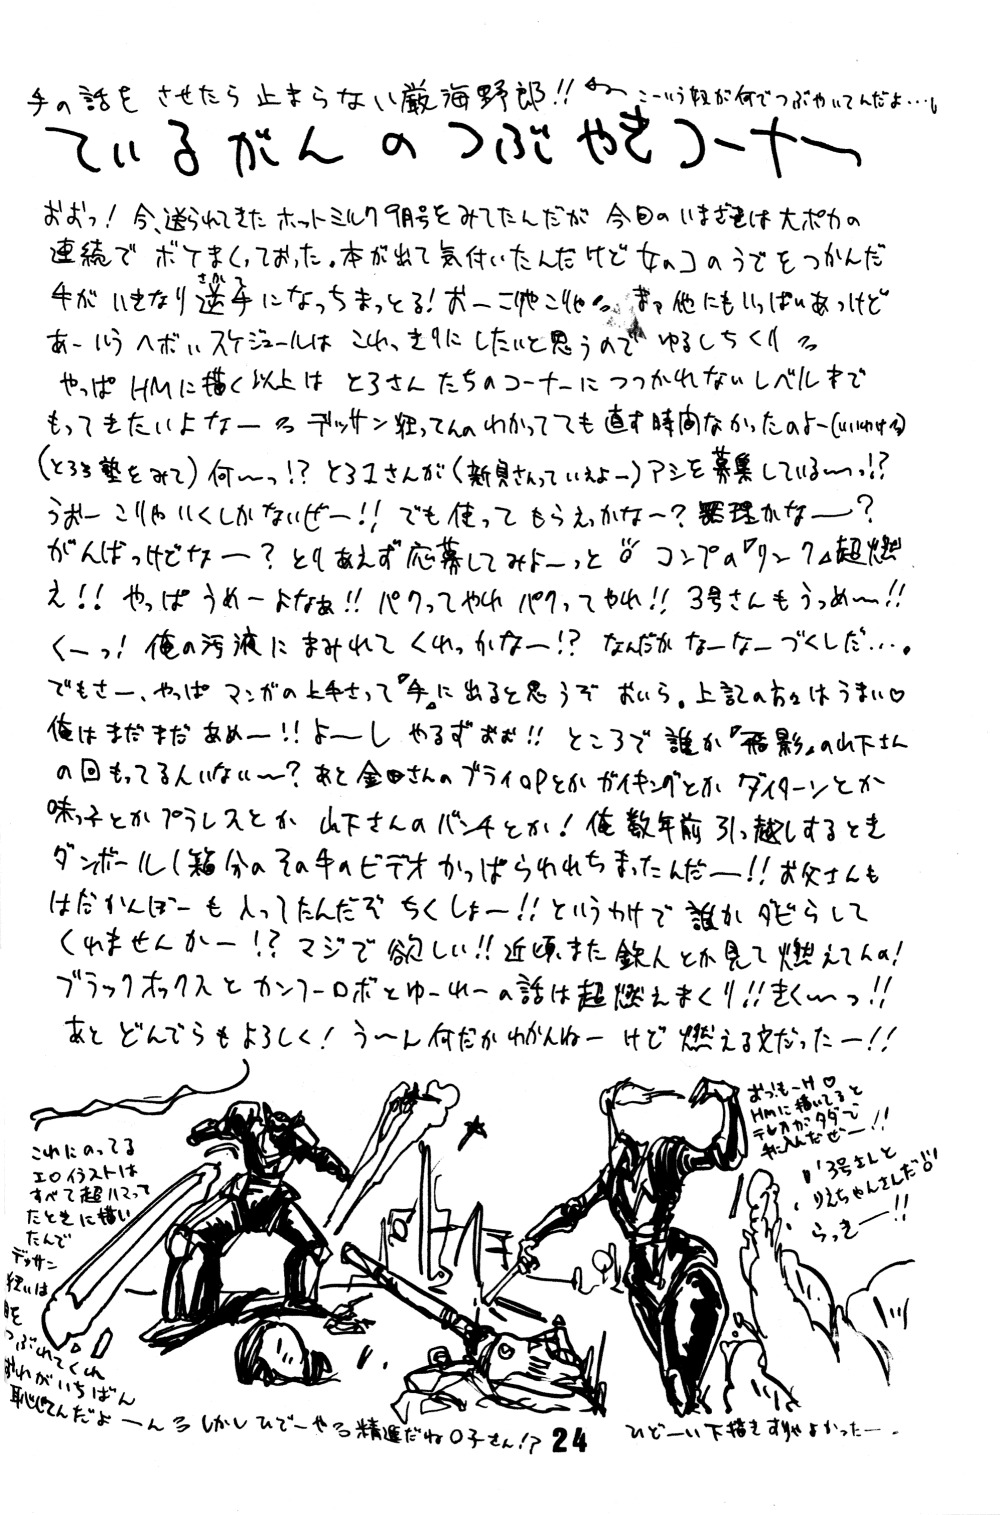 手の話をさせたら止まらない厳海野郎!! こーいう奴が何でつぶやいてんだよ…。
ているがんのつぶやきコーナー
おおっ!今、送られてきたホットミルク9月号をみてたんだが今回のいまざきは大ポカの
連続でボケまくっておった。本が出て気付いたんだけど女のコのうでをつかんだ
手がいきなり逆手になっちまっとる!おーこりゃこりゃ まァ他にもいっぱいあっけど
さかて
あーいうヘボいスケジュールはこれっきりにしたいと思うのでゆるしちくり
やっぱHMに描く以上はとろさんたちのコーナーにつつかれないレベルまで
もってきたいよなー デッサン狂ってんのわかってても直す時間なかったのよー(いいわけ)
(とろろ塾をみて)何〜っ!?とろ1さんが(新貝さんっていえよー)アシを募集している〜っ!?
うおーこりゃいくしかないぜー!!でも使ってもらえっかな〜?無理かな〜?
がんばっけどなー?とりあえず応募してみよーっと コンプの『リンク』超燃
え!!やっぱうめーよなぁ!!パクってやれパクってやれ!!3号さんもうっめ〜!!
くーっ!俺の汚液にまみれてくれっかなー!?なんだかなーなーづくしだ…。
でもさー、やっぱマンガの上手さって『手』に出ると思うぞおいら。上記の方々はうまい♡
俺はまだまだあめー!!よ〜しやるずおぉ!!ところで誰か『飛影』の山下さん
の回もってる人いない〜?あと金田さんのブライOPとかガイキングとかダイターンとか
味っ子とかプラレスとか山下さんのバンチとか!俺数年前引っ越しするとき
ダンボール1箱分のその手のビデオかっぱらわれちまったんだー!!お父さんも
はだかんぼーも入ってたんだぞちくしょー!!というわけで誰かダビらして
くれませんかー!?マジで欲しい!!近頃また鉄人とか見て燃えてんの!
ブラックオックスとカンフーロボとゆーれーの話は超燃えまくり!!きく〜っ!!
あとどんでらもよろしく!う〜ん何だかわかんねーけど燃える文だったー!!
おっ!もーH♡
HMに描いてると
テレカがタダで
手に入んだぜー!!
3号さんと
りえちゃんさんだ
らっきー!!
これにのってる
エロイラストは
すべて超ハマって
たときに描い
たんで
デッサン
狂いは
目を
つぶれてくれ
おれがいちばん
恥じてんだよ〜ん しかしひでーやる 精進だねO子さん!?
24
ひどーい下描きすりゃよかったー。